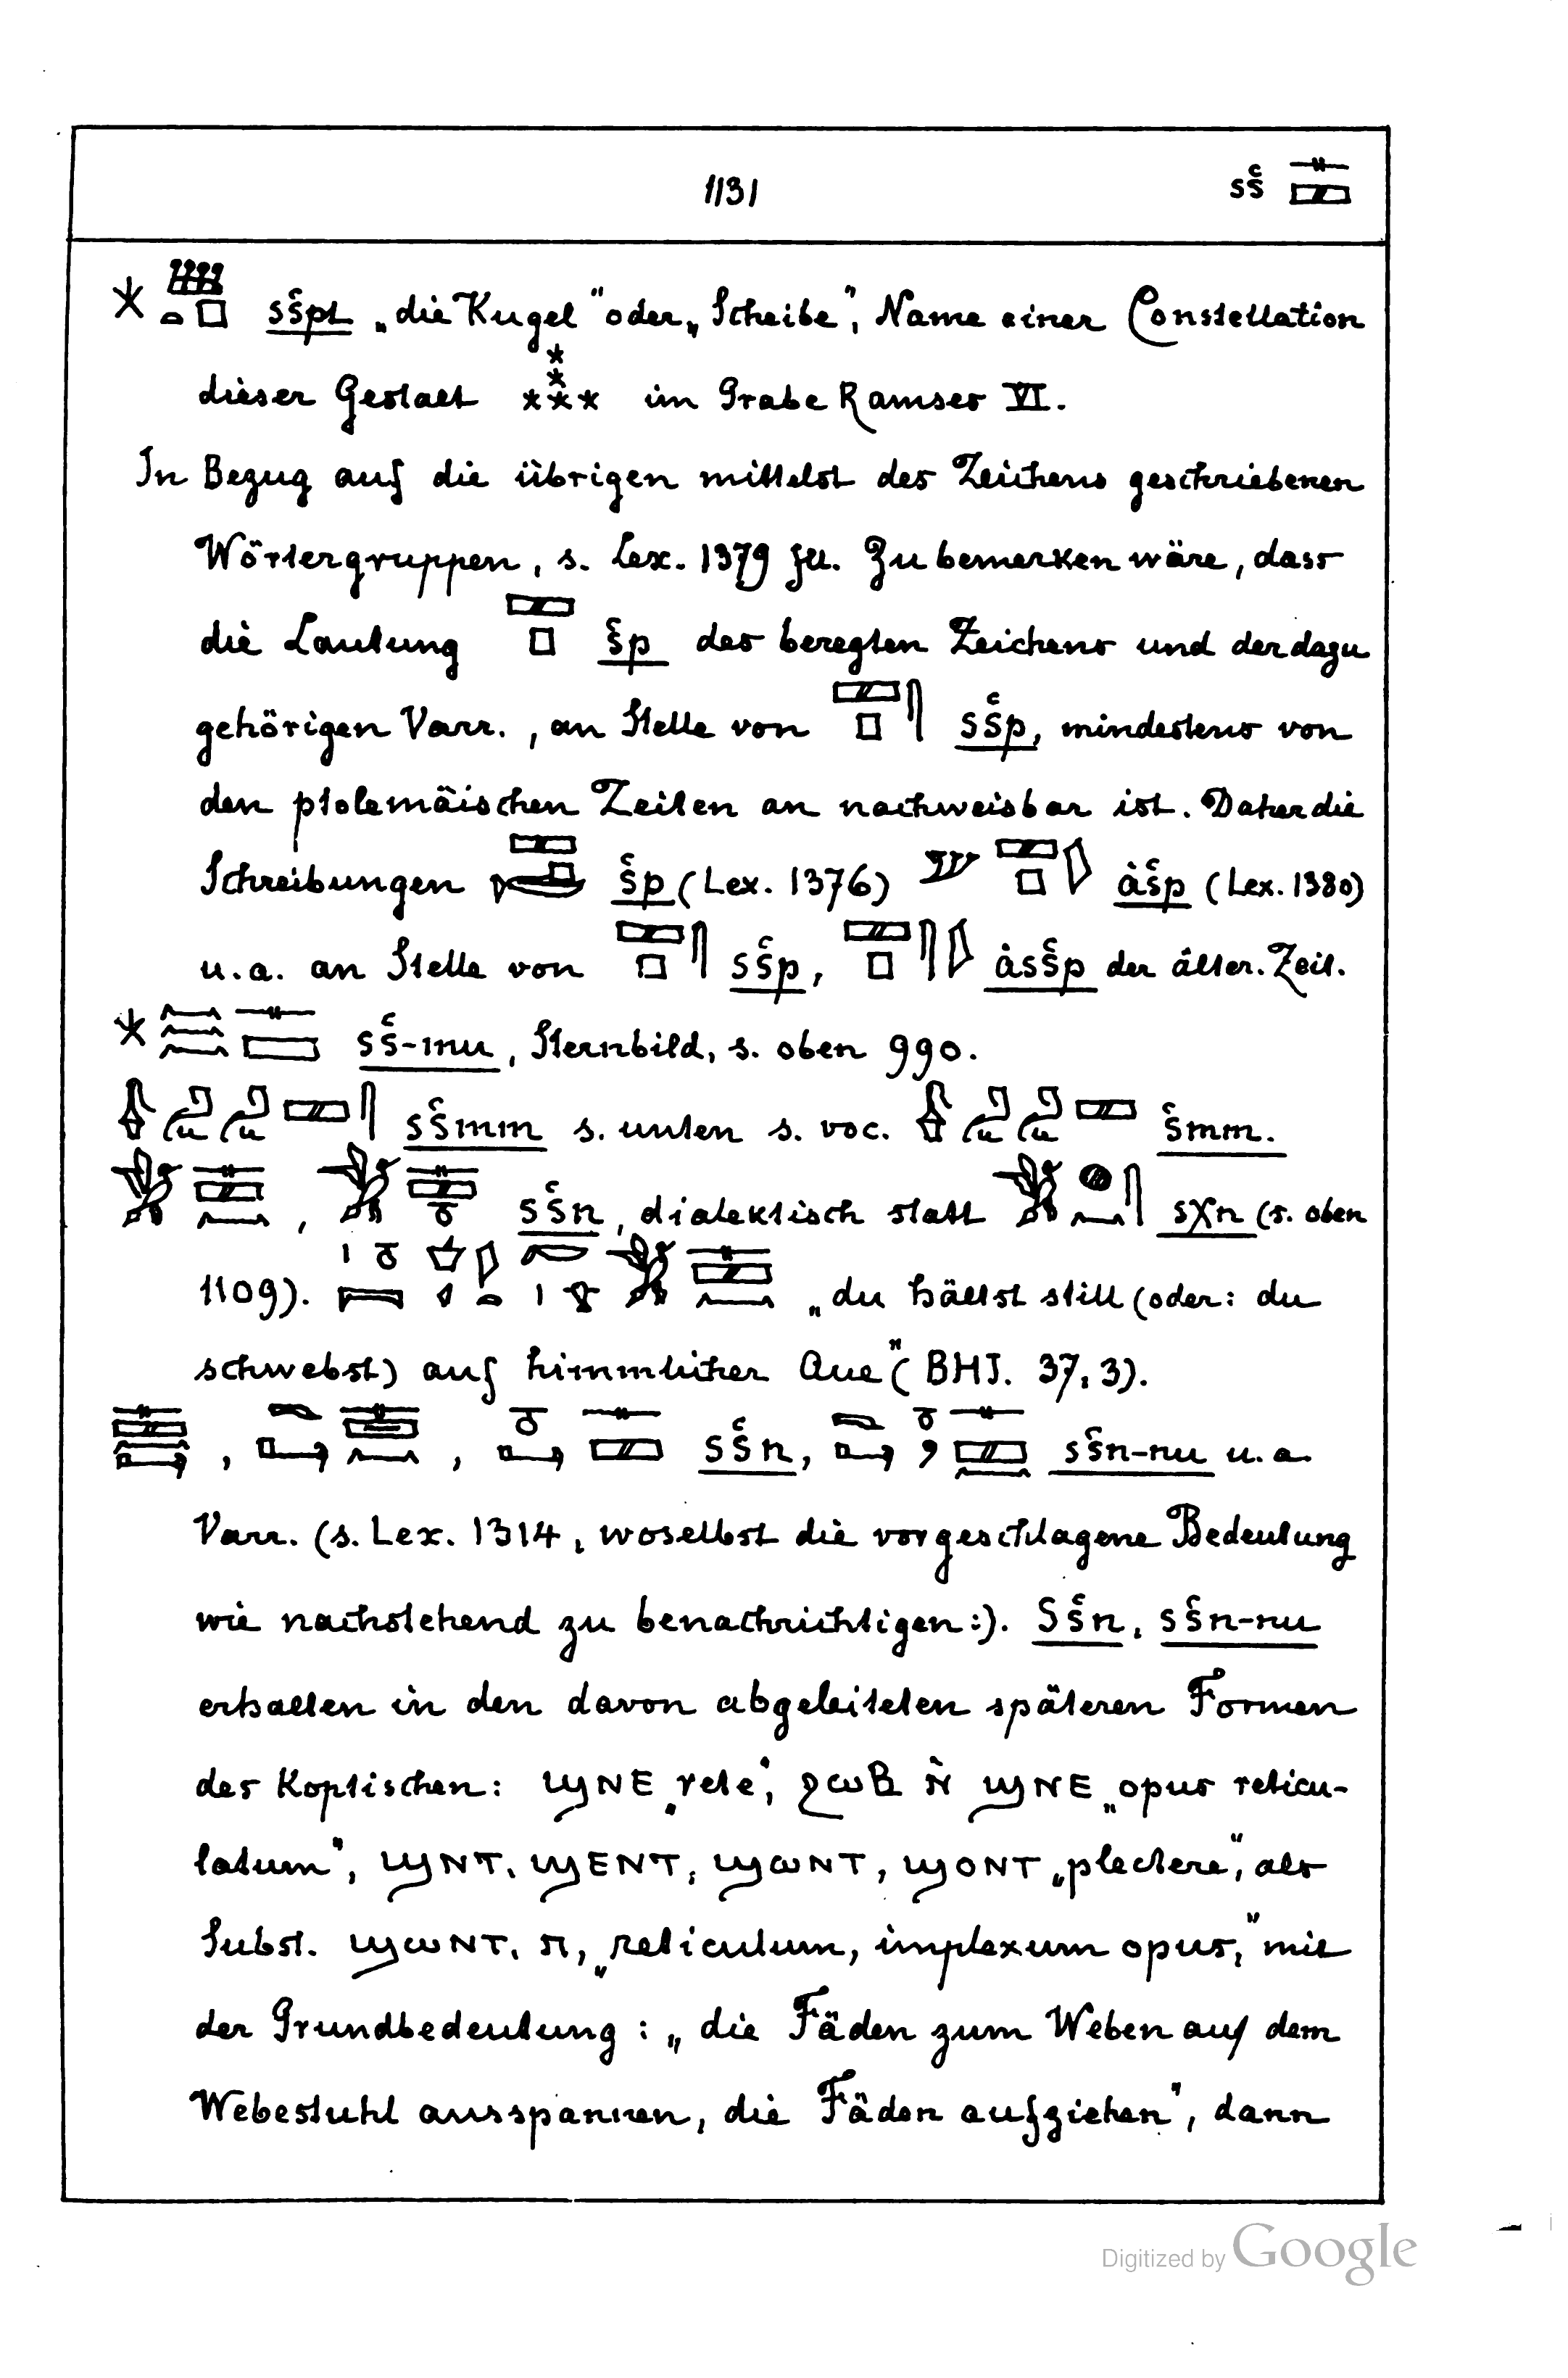 1131 sš
sšpt „die Kugel“ oder „Scheibe“, Name einer Constellation
dieser Gestalt *⁂* im Grabe Ramses VI.
In Bezug auf die übrigen mittelst des Zeichens geschriebenen
Wörtergruppen, s. Lex. 1379 fll. Zu bemerken wäre, dass
die Lautung šp des beregten Zeichens und der dazu
gehörigen Varr., an Stelle von sšp, mindestens von
den ptolemäischen Zeiten an nachweisbar ist. Daher die
Schreibungen šp (Lex. 1376) ȧšp (Lex. 1380)
u.a. an Stelle von sšp, ȧsšp der älter. Zeit.
sš-mu, Sternbild, s. oben 990.
sšmm s. unten s. voc. šmm.
, sšn, dialektisch statt sχn (s. oben
1109). „du hältst still (oder: du
schwebst) auf himmlischer Aue“ (BHI. 37, 3).
, , sšn, sšn-nu u.a.
Varr. (s. Lex. 1314, woselbst die vorgeschlagene Bedeutung
wie nachstehend zu benachrichtigen:). Sšn, sšn-nu
erhalten in den davon abgeleiteten späteren Formen
des Koptischen: ϣΝΕ „rete“, ϩωΒ Ν̀ ϣΝΕ „opus reticu-
latum“, ϣΝΤ, ϣΕΝΤ, ϣωΝΤ, ϣΟΝΤ „plectere“, als
Subst. ϣωΝΤ, π, „reticulum, implexum opus,“ mit
der Grundbedeutung: „die Fäden zum Weben auf dem
Webestuhl ausspannen, die Fäden aufziehen“, dann
Digitized by Google